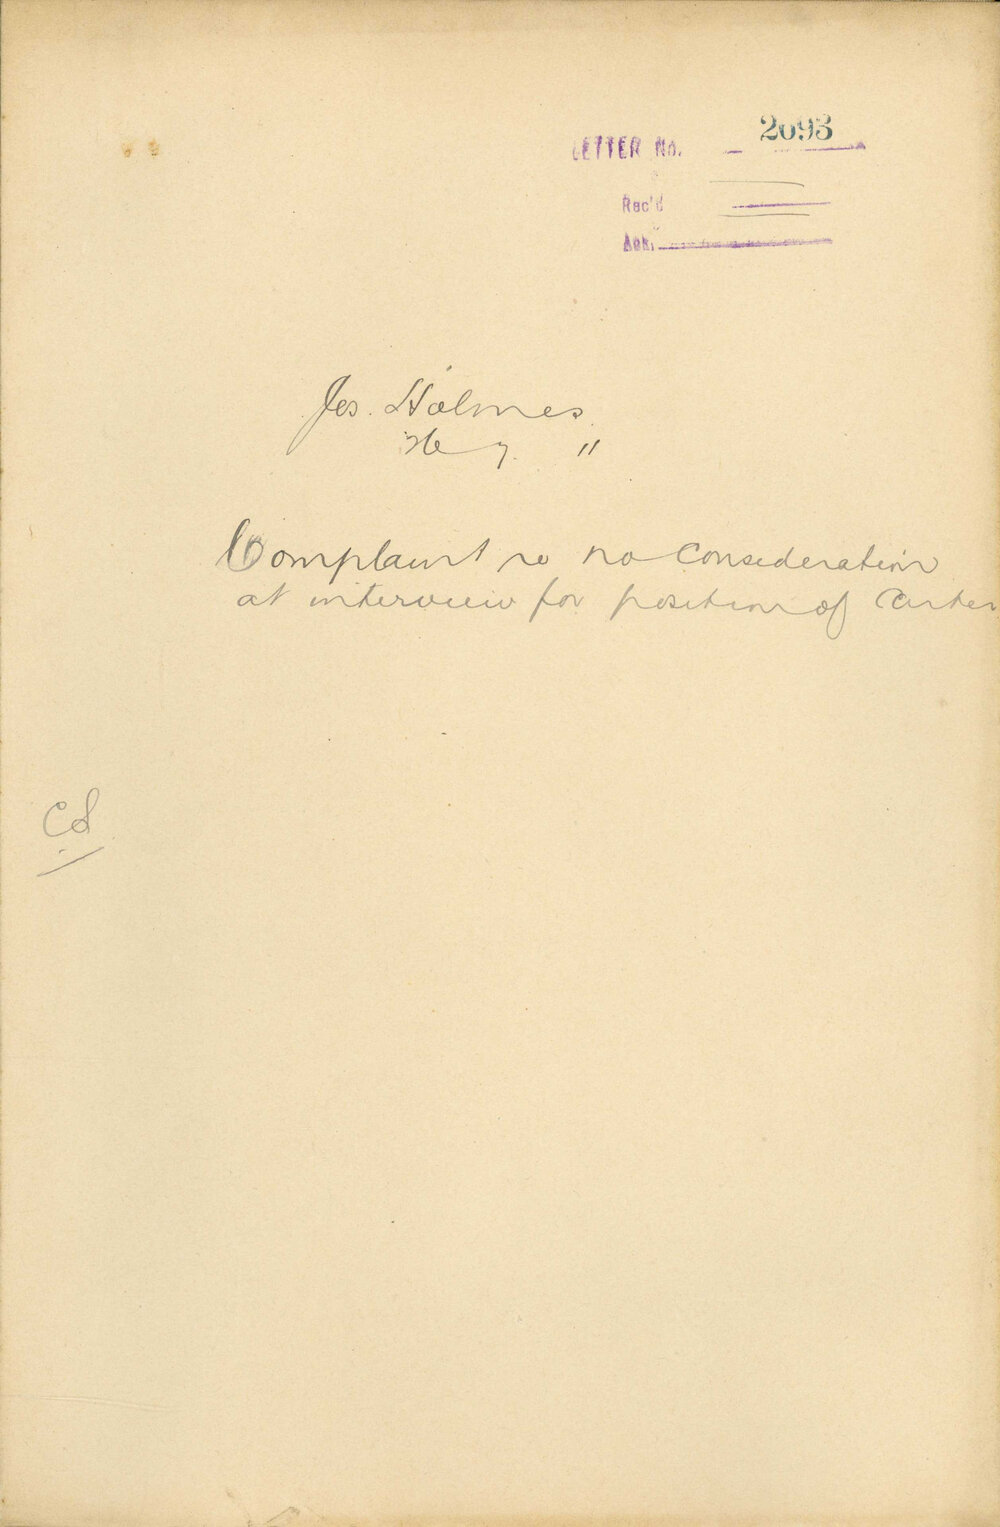 LETTER No. 2093
Rec'd
Ack.
Jas. Holmes
Hy. "
Complaint re no consideration
at interview for position of Carter
CS